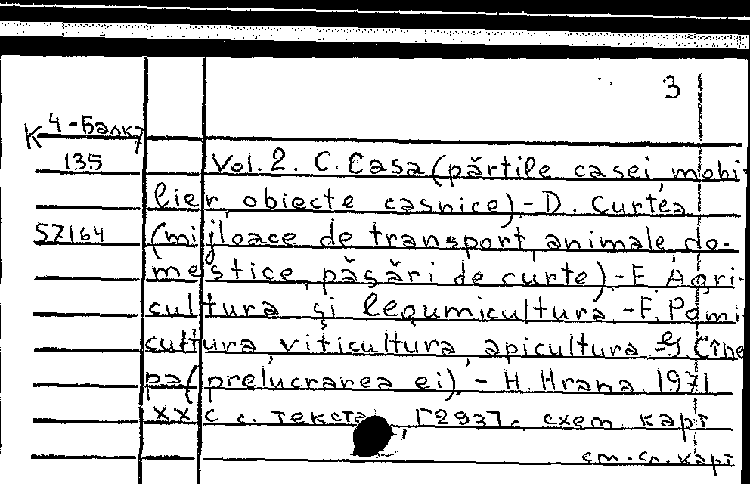 3
К 4-Балк7
135
Vol. 2. C. Casa (părtile casei, mobi-
lier, obiecte casnice) - D. Curtea
57164
(mijloace de transport, animale do-
mestice, păsări de curte) - E. Agri-
cultura și legumicultura - F. Pomi-
cultura, viticultura, apicultura G. Cîne-
pa (prelucrarea ei). - H. Hrana. 1971
XX с. с. текста, [293]. схем. карт
см. сл. карт